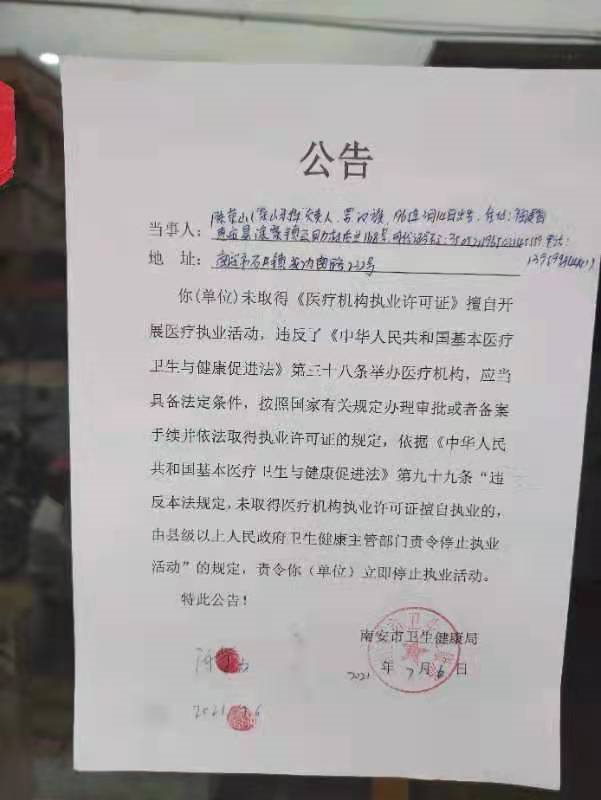 公告
当事人：
地 址：
你(单位)未取得《医疗机构执业许可证》擅自开
展医疗执业活动，违反了《中华人民共和国基本医疗
卫生与健康促进法》第三十八条举办医疗机构，应当
具备法定条件，按照国家有关规定办理审批或者备案
手续并依法取得执业许可证的规定，依据《中华人民
共和国基本医疗卫生与健康促进法》第九十九条“违
反本法规定，未取得医疗机构执业许可证擅自执业的，
由县级以上人民政府卫生健康主管部门责令停止执业
活动”的规定，责令你（单位）立即停止执业活动。
特此公告！
南安市卫生健康局
2021 年 7 月 6 日